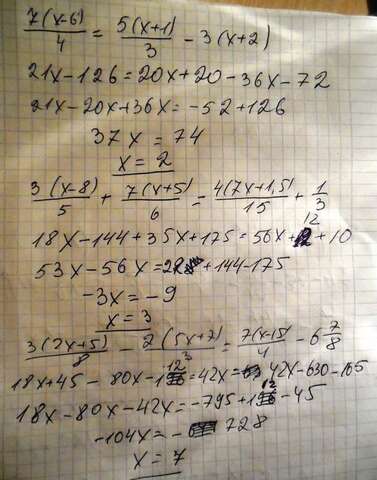 7(x-6)/4 = 5(x+1)/3 - 3(x+2)
21x-126=20x+20-36x-72
21x-20x+36x=-52+126
37x=74
x=2
3(x-8)/5 + 7(x+5)/6 = 4(7x+1,5)/15 + 1/3
18x-144+35x+175=56x+12+10
53x-56x=22+144-175
-3x=-9
x=3
3(2x+5)/8 - 2(5x+7)/3 = 7(x-15)/4 - 6 7/8
18x+45-80x-112=42x 42x-630-165
18x-80x-42x=-795+112-45
-104x=-728
x=7